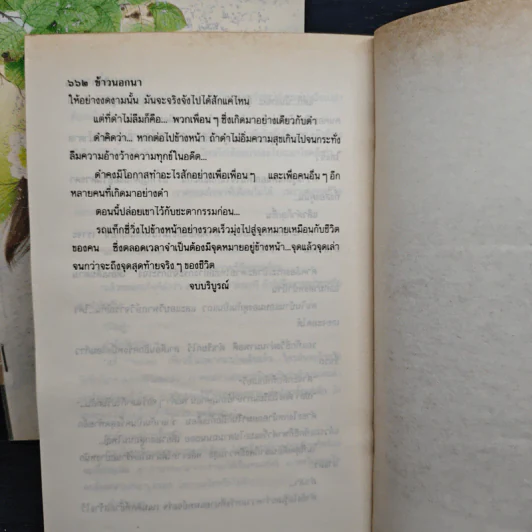 ๖๖๒ ข้าวนอกนา
ให้อย่างงดงามนั้น มันจะจริงจังไปได้สักแค่ไหน
แต่ที่ดำไม่ลืมก็คือ... พวกเพื่อน ๆ ซึ่งเกิดมาอย่างเดียวกับดำ
ดำคิดว่า... หากต่อไปข้างหน้า ถ้าดำไม่อิ่มความสุขเกินไปจนกระทั่ง
ลืมความอ้างว้างความทุกข์ในอดีต...
ดำคงมีโอกาสทำอะไรสักอย่างเพื่อเพื่อน ๆ และเพื่อคนอื่น ๆ อีก
หลายคนที่เกิดมาอย่างดำ
ตอนนี้ปล่อยเขาไว้กับชะตากรรมก่อน...
รถแท็กซี่วิ่งไปข้างหน้าอย่างรวดเร็วมุ่งไปสู่จุดหมายเหมือนกับชีวิต
ของคน ซึ่งตลอดเวลาจำเป็นต้องมีจุดหมายอยู่ข้างหน้า...จุดแล้วจุดเล่า
จนกว่าจะถึงจุดสุดท้ายจริง ๆ ของชีวิต
จบบริบูรณ์